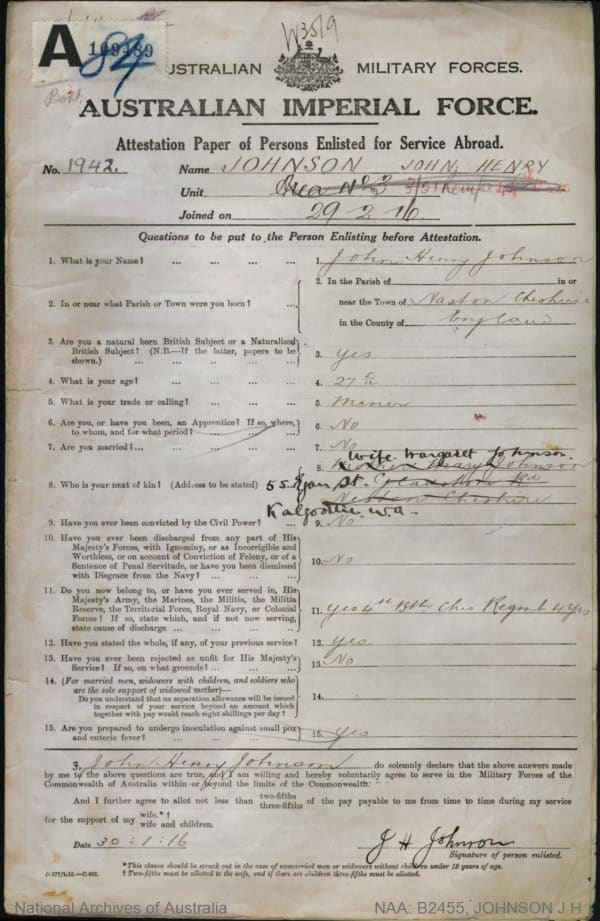 W3519
A
84
AUSTRALIAN MILITARY FORCES.
AUSTRALIAN IMPERIAL FORCE.
Attestation Paper of Persons Enlisted for Service Abroad.
No. 1942. Name JOHNSON JOHN HENRY
Unit Area No 3
Joined on 29 2 16.
Questions to be put to the Person Enlisting before Attestation.
1. What is your Name? ... ... ... ... 1. John Henry Johnson
2. In or near what Parish or Town were you born? ... 2. In the Parish of in or
near the Town of Neston Cheshire
in the County of England
3. Are you a natural born British Subject or a Naturalized
British Subject? (N.B.—If the latter, papers to be
shown.) ... ... ... ... 3. Yes
4. What is your age? ... ... ... ... 4. 27
5. What is your trade or calling? ... ... ... 5. Miner
6. Are you, or have you been, an Apprentice? If so, where,
to whom, and for what period? ... ... ... 6. No
7. Are you married? ... ... ... ... 7. No
Wife. Margaret Johnson.
8. Who is your next of kin? (Address to be stated) 8. Mary Johnson
55 Egan St. Gladstone Rd
Neston Cheshire
Kalgoorlie W.A.
9. Have you ever been convicted by the Civil Power? ... 9. No
10. Have you ever been discharged from any part of His
Majesty's Forces, with Ignominy, or as Incorrigible and
Worthless, or on account of Conviction of Felony, or of a
Sentence of Penal Servitude, or have you been dismissed
with Disgrace from the Navy? ... ... ... 10. No
11. Do you now belong to, or have you ever served in, His
Majesty's Army, the Marines, the Militia, the Militia
Reserve, the Territorial Force, Royal Navy, or Colonial
Forces? If so, state which, and if not now serving,
state cause of discharge ... ... ... 11. Yes 4th Btn Ches Regmt 4 yrs
12. Have you stated the whole, if any, of your previous service? 12. Yes.
13. Have you ever been rejected as unfit for His Majesty's
Service? If so, on what grounds? ... ... 13. No
14. (For married men, widowers with children, and soldiers who
are the sole support of widowed mother)—
Do you understand that no separation allowance will be issued
in respect of your service beyond an amount which
together with pay would reach eight shillings per day? 14.
15. Are you prepared to undergo inoculation against small pox
and enteric fever? ... ... ... 15. Yes
I, John Henry Johnson do solemnly declare that the above answers made
by me to the above questions are true, and I am willing and hereby voluntarily agree to serve in the Military Forces of the
Commonwealth of Australia within or beyond the limits of the Commonwealth.
And I further agree to allot not less than two-fifths three-fifths of the pay payable to me from time to time during my service
for the support of my wife.*† wife and children.
Date 30:1:16
J H Johnson
Signature of person enlisted.
*This clause should be struck out in the case of unmarried men or widowers without children under 18 years of age.
† Two-fifths must be allotted to the wife, and if there are children three-fifths must be allotted.
National Archives of Australia NAA: B2455, JOHNSON J H